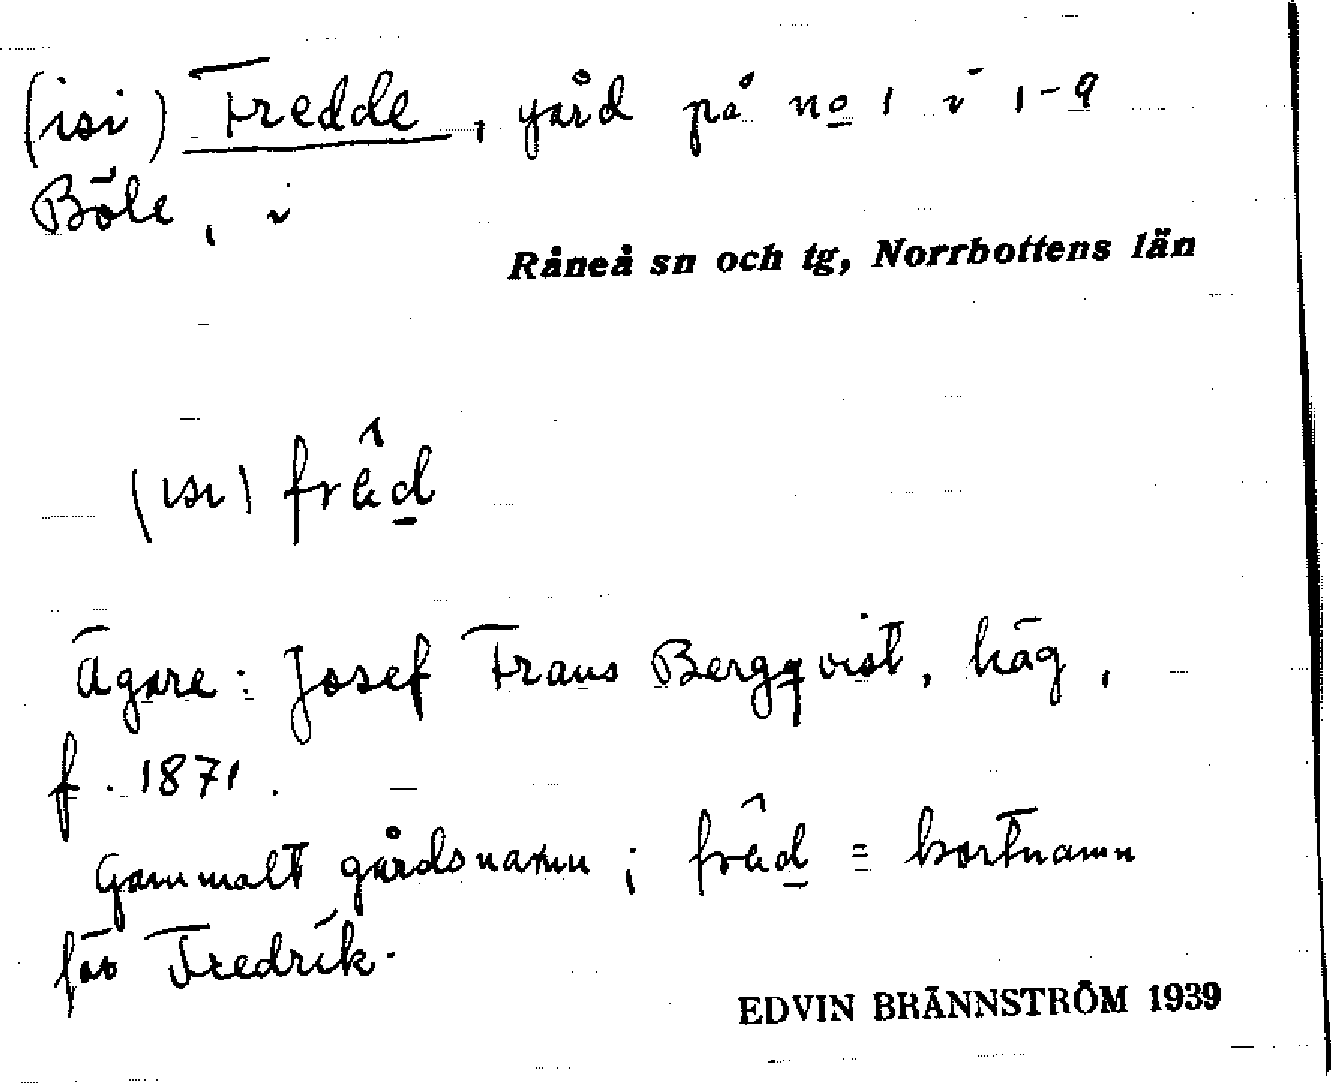 (isi) Fredde, gård på no 1 i 1-9
Böle, i
Råneå sn och tg, Norrbottens län
(isi) fräd
Ägare: Josef Frans Bergqvist, häg,
f. 1871.
Gammalt gårdsnamn; fräd = kortnamn
för Fredrik.
EDVIN BRÄNNSTRÖM 1939